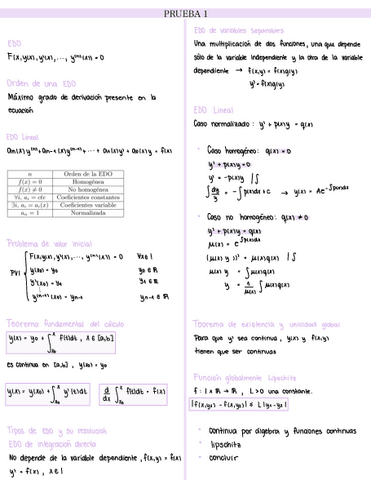 PRUEBA 1
EDO
F(x,y(x),y'(x),..., y⁽ⁿ⁾(x)) = 0
Orden de una EDO
Máximo grado de derivación presente en la
ecuación
EDO Lineal
aₙ(x) y⁽ⁿ⁾ + aₙ₋₁(x) y⁽ⁿ⁻¹⁾ + ... + a₁(x) y' + a₀(x) y = f(x)
n Orden de la EDO
f(x) = 0 Homogénea
f(x) ≠ 0 No homogénea
∀i, aᵢ = cte Coeficientes constantes
∃i, aᵢ = aᵢ(x) Coeficientes variable
aₙ = 1 Normalizada
Problema de valor inicial
PVI
F(x,y(x),y'(x),..., y⁽ⁿ⁾(x)) = 0 ∀x ∈ I
y(x₀) = y₀ y₀ ∈ ℝ
y'(x₀) = y₁ y₁ ∈ ℝ
y⁽ⁿ⁻¹⁾(x₀) = yₙ₋₁ yₙ₋₁ ∈ ℝ
Teorema fundamental del cálculo
y(x) = y₀ + ∫ₓ₀ˣ f(t)dt , x ∈ [a,b]
es continua en [a,b] , y(x₀) = y₀
y(x) = y(x₀) + ∫ₓ₀ˣ y'(t)dt d/dx ∫ₓ₀ˣ f(t)dt = f(x)
Tipos de EDO y su resolución
EDO de integración directa
No depende de la variable dependiente, f(x,y) = f(x)
y' = f(x) , x ∈ I
EDO de variables separables
Una multiplicación de dos funciones, una que depende
sólo de la variable independiente y la otra de la variable
dependiente → f(x,y) = f(x)g(y)
y' = f(x)g(y)
EDO Lineal
Caso normalizado : y' + p(x)y = q(x)
· Caso homogéneo: q(x) = 0
y' + p(x)y = 0
y' = -p(x)y /∫
∫ dy/y = - ∫ p(x)dx + C → y(x) = Ae^(-∫p(x)dx)
· Caso no homogéneo: q(x) ≠ 0
y' + p(x)y = q(x)
μ(x) = e^(∫p(x)dx)
(μ(x) y)' = μ(x)q(x) /∫
μ(x) y = ∫ μ(x)q(x)
y = 1/μ(x) ∫ μ(x)q(x)
Teorema de existencia y unicidad global
Para que y' sea continua , y(x) y f(x,y)
tienen que ser continuas
Función globalmente Lipschitz
f : I x ℝ → ℝ , L > 0 una constante.
|f(x,y₁) - f(x,y₂)| ≤ L |y₁ - y₂|
· Continua por álgebra y funciones continuas
· lipschitz
· concluir